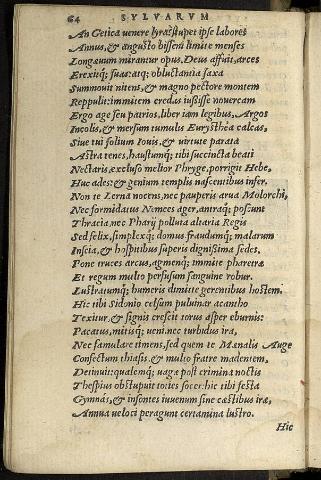 64 SYLVARVM
An Getica uenere lyræ? stupet ipse labores
Annus, & angusto bisseni limite menses
Longæuum mirantur opus. Deus affuit, arces
Erexitq; suas: atq; obluctantia saxa
Summouit nitens, & magno pectore montem
Reppulit: immitem credas iussisse nouercam
Ergo age seu patrios, liber iam legibus, Argos
Incolis, & mersum tumulis Eurysthea calcas,
Siue tui solium Iouis, & uirtute parata
Astra tenes, haustumq; tibi succincta beati
Nectaris, excluso melior Phryge, porrigit Hebe,
Huc ades: & genium templis nascentibus infer.
Non te Lerna nocens, nec pauperis arua Molorchi,
Nec formidatus Nemees ager, antraq; poscunt
Thracia, nec Pharij polluta altaria Regis
Sed felix, simplexq; domus fraudumq; malarum
Inscia, & hospitibus superis dignissima sedes.
Pone truces arcus, agmenq; immite pharetræ
Et regum multo perfusum sanguine robur.
Lustratumq; humeris dimitte gerentibus hostem.
Hic tibi Sidonio celsum puluinar acantho
Texitur, & signis crescit torus asper eburnis:
Pacatus, mitisq; ueni. nec turbidus ira,
Nec famulare timens, sed quem te Mænalis Auge
Confectum thiasis, & multo fratre madentem,
Detinuit: qualemq; uagæ post crimina noctis
Thespius obstupuit toties socer. hic tibi festa
Gymnas, & insontes iuuenum sine cæstibus iræ,
Annua ueloci peragunt certamina lustro.
Hic